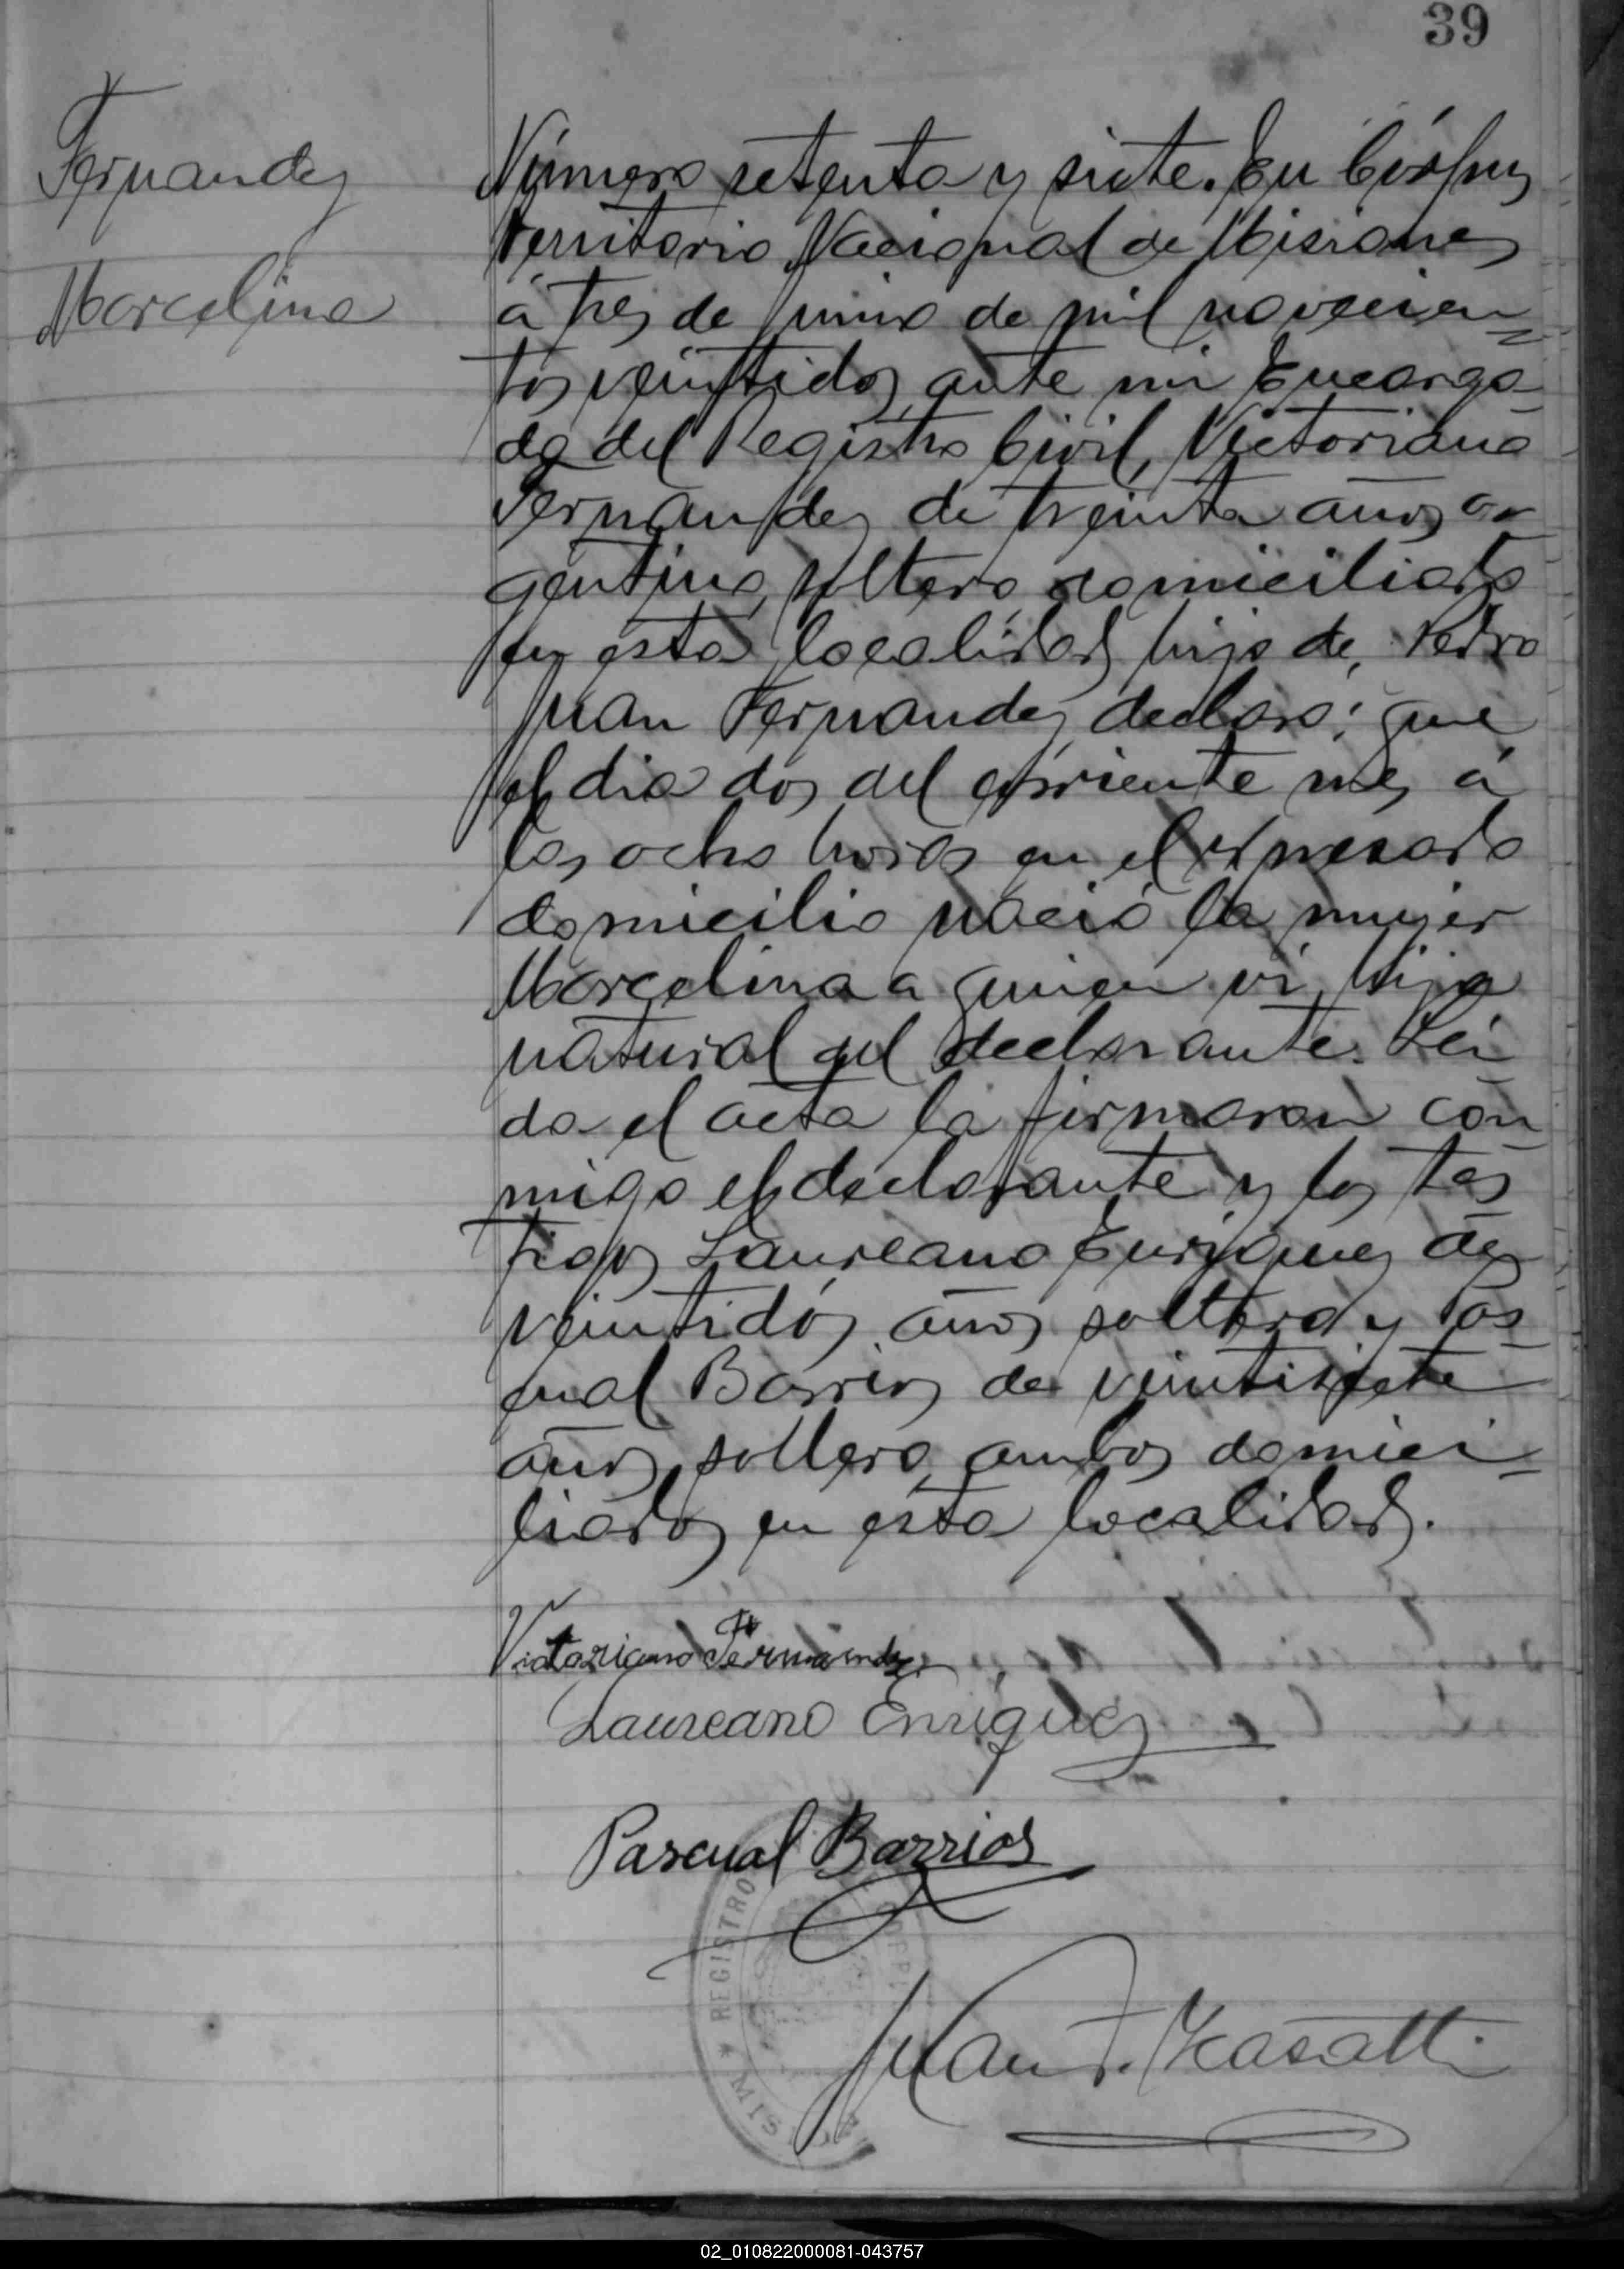 39
Fernandez
Marcelina
Número setenta y siete. En Córpus
Territorio Nacional de Misiones
á tres de Junio de mil novecien-
tos veintidos, ante mi Encarga-
do del Registro Civil, Victoriano
Fernandez de treinta años ar-
gentino, soltero domiciliado
en esta localidad hijo de, Pedro
Juan Fernandez declaro: que
el dia dos del corriente mes á
las ocho horas en el expresado
domicilio nació la mujer
Marcelina a quien vi, hija
natural del declarante. Lei-
da el acta la firmaron con-
migo el declarante y los tes-
tigos Laureano Enriquez de
veintidós años soltero y Pas-
cual Barrios de veintisiete
años soltero, ambos domici-
liados en esta localidad.
Victoriano Fernandez
Laureano Enriquez
Pascual Barrios
REGISTRO
MIS
Juan
02_010822000081-043757